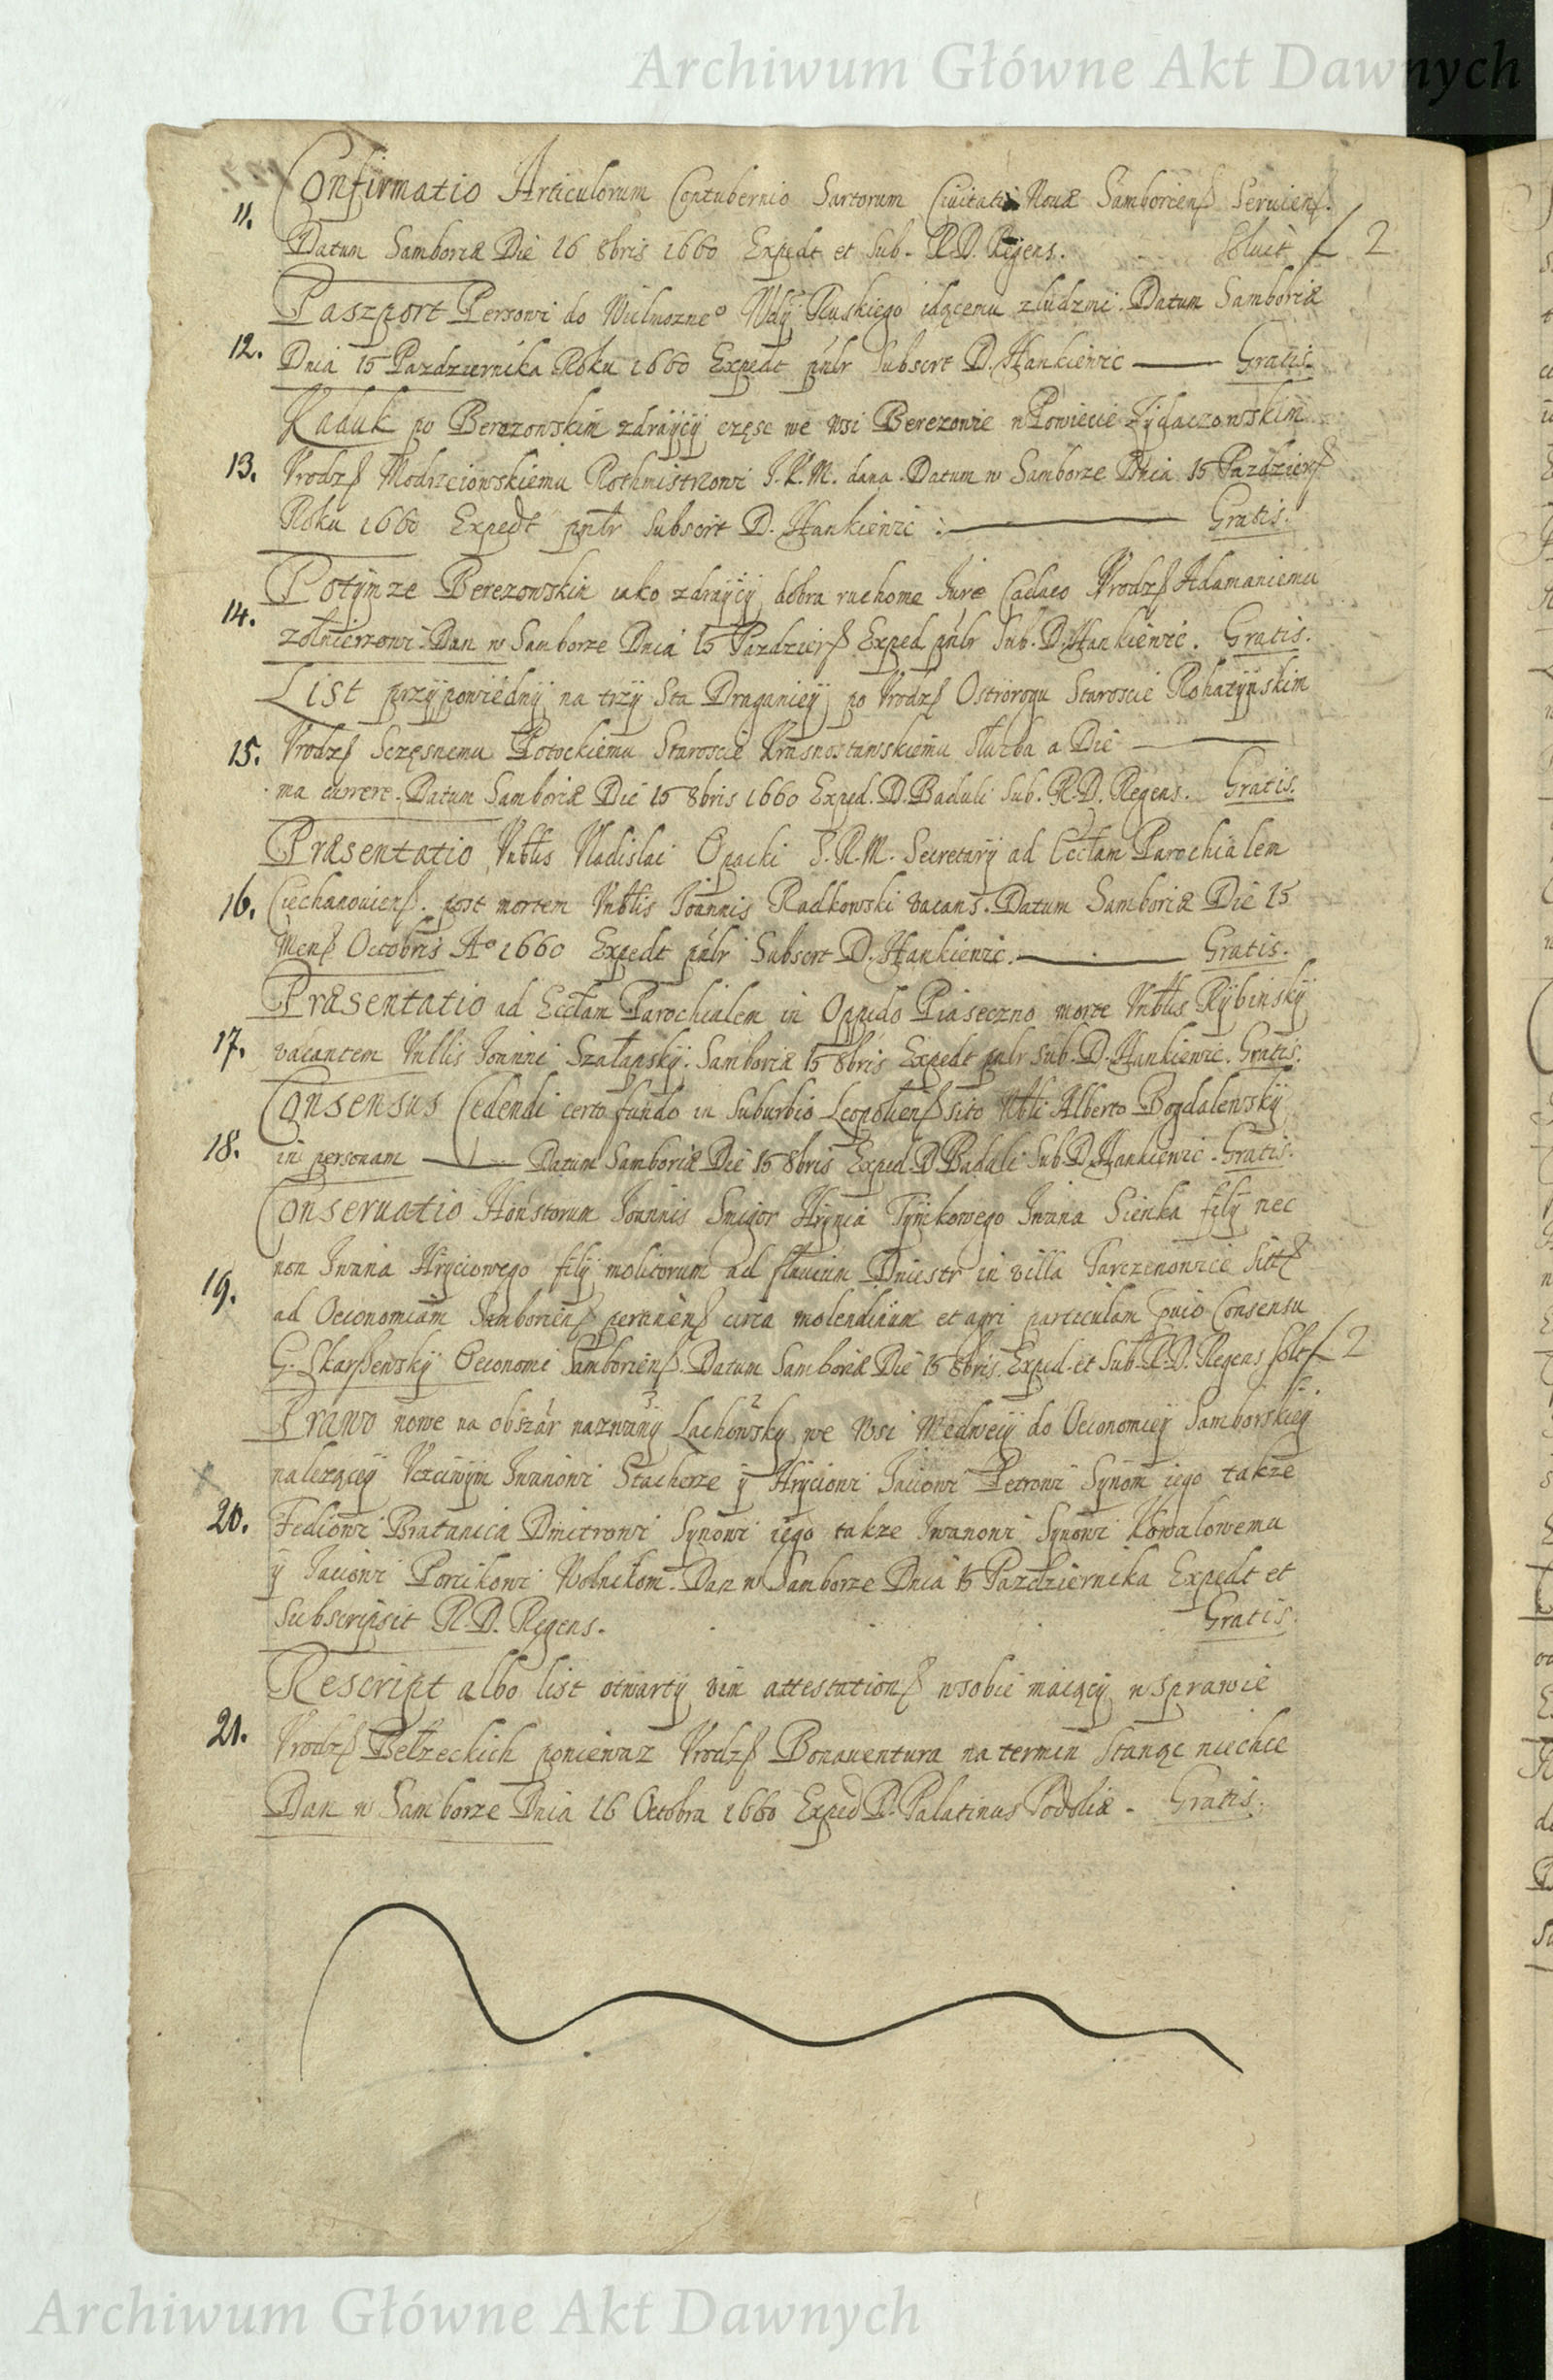 Archiwum Główne Akt Dawnych
Confirmatio Articulorum Contubernio Sartorum Civitati Novæ Samboriens Seruiens.
11.
Datum Samboriæ Die 16 8bris 1660 Expedt et Sub. R.D. Regens. Soluit f. 2
Paszport Persowi do Wielmozneo Wdy Ruskiego idącemu z ludzmi. Datum Samboriæ
12. Dnia 15 Pazdziernika Roku 1660 Expedt pnlr Subscrt D. Hankiewic Gratis.
Kaduk po Berezowskim zdraycy częsc we wsi Berezowie w Powiecie Zydaczowskim
13. Vrodz Modrzeiowskiemu Rothmistrzowi J.K.M. dana. Datum w Samborze Dnia 15 Pazdzier
Roku 1660 Expedt pnlr Subscrt D. Hankiewic : Gratis.
Potymze Berezowskim iako zdraycy dobra ruchome Jure Caduco Vrodz Adamaniemu
14.
zołnierzowi. Dan w Samborze Dnia 15 Pazdzier Exped pnlr Sub. D. Hankiewic. Gratis.
List przypowiedny na trzy Sta Draganiey po Vrodz Ostrorogu Staroscie Rohatynskim
15. Vrodz Sczęsnemu Potockiemu Staroscie Krasnostawskiemu Służba a Die
ma currere. Datum Samboriæ Die 15 8bris 1660 Exped. D. Baduli Sub. R.D. Regens. Gratis.
Præsentatio Vnblis Vladislai Opacki S.R.M. Secretary ad Ecclam Parochialem
16. Ciechanouiens. post mortem Vnblis Joannis Radkowski vacans. Datum Samboriæ Die 15
Mens Octobris Ao 1660 Expedt pnlr Subscrt D. Hankiewic. Gratis.
Præsentatio ad Ecclam Parochialem in Oppido Piaseczno morte Vnblis Rybinsky
17. vacantem Vnblis Joanni Szałapsky. Samboriæ 15 8bris Expedt pnlr Sub. D. Hankiewic. Gratis.
Consensus Cedendi certo fundo in Suburbio Leopoliens sito Nbli Alberto Bogdalensky
18. in personam Datum Samboriæ Die 15 8bris Exped. D Baduli Sub D. Hankiewic. Gratis.
Conseruatio Honstorum Joannis Smigor Hrynia Tymkowego Iwana Sienka fily nec
non Iwana Hryciowego fily molitorum ad fluuium Dniestr in villa Tarczenowice Sitt
19.
ad Oeconomiam Samboriens pertinens circa molendinum et agri particulam pnio Consensu
G. Skarszewsky Oeconomi Samboriens. Datum Samboriæ Die 15 8bris. Exped. et Sub. R.D. Regens solt f. 2
Prawo nowe na obszár nazwany Lachowsky we Wsi Medweiy do Oeconomiey Samborskiey
nalezącey Vczciwym Iwanowi Stacherze y Hryciowi Iaciowi Petrowi Synom iego takze
20. Fediowi Bratanica Dmitrowi Synowi iego takze Iwanowi Synowi Kowalowemu
y Iaciowi Porcikowi Wolnikom. Dan w Samborze Dnia 15 Pazdziernika Expedt et
Subscripsit R.D. Regens. Gratis.
Rescript albo list otwarty vim attestations w sobie maiący w sprawie
21. Vrodz Bełzeckich poniewaz Vrodz Bonauentura na termin stanąc niechce
Dan w Samborze Dnia 16 Octobra 1660 Exped D. Palatinus Podoliæ. Gratis.
Archiwum Główne Akt Dawnych